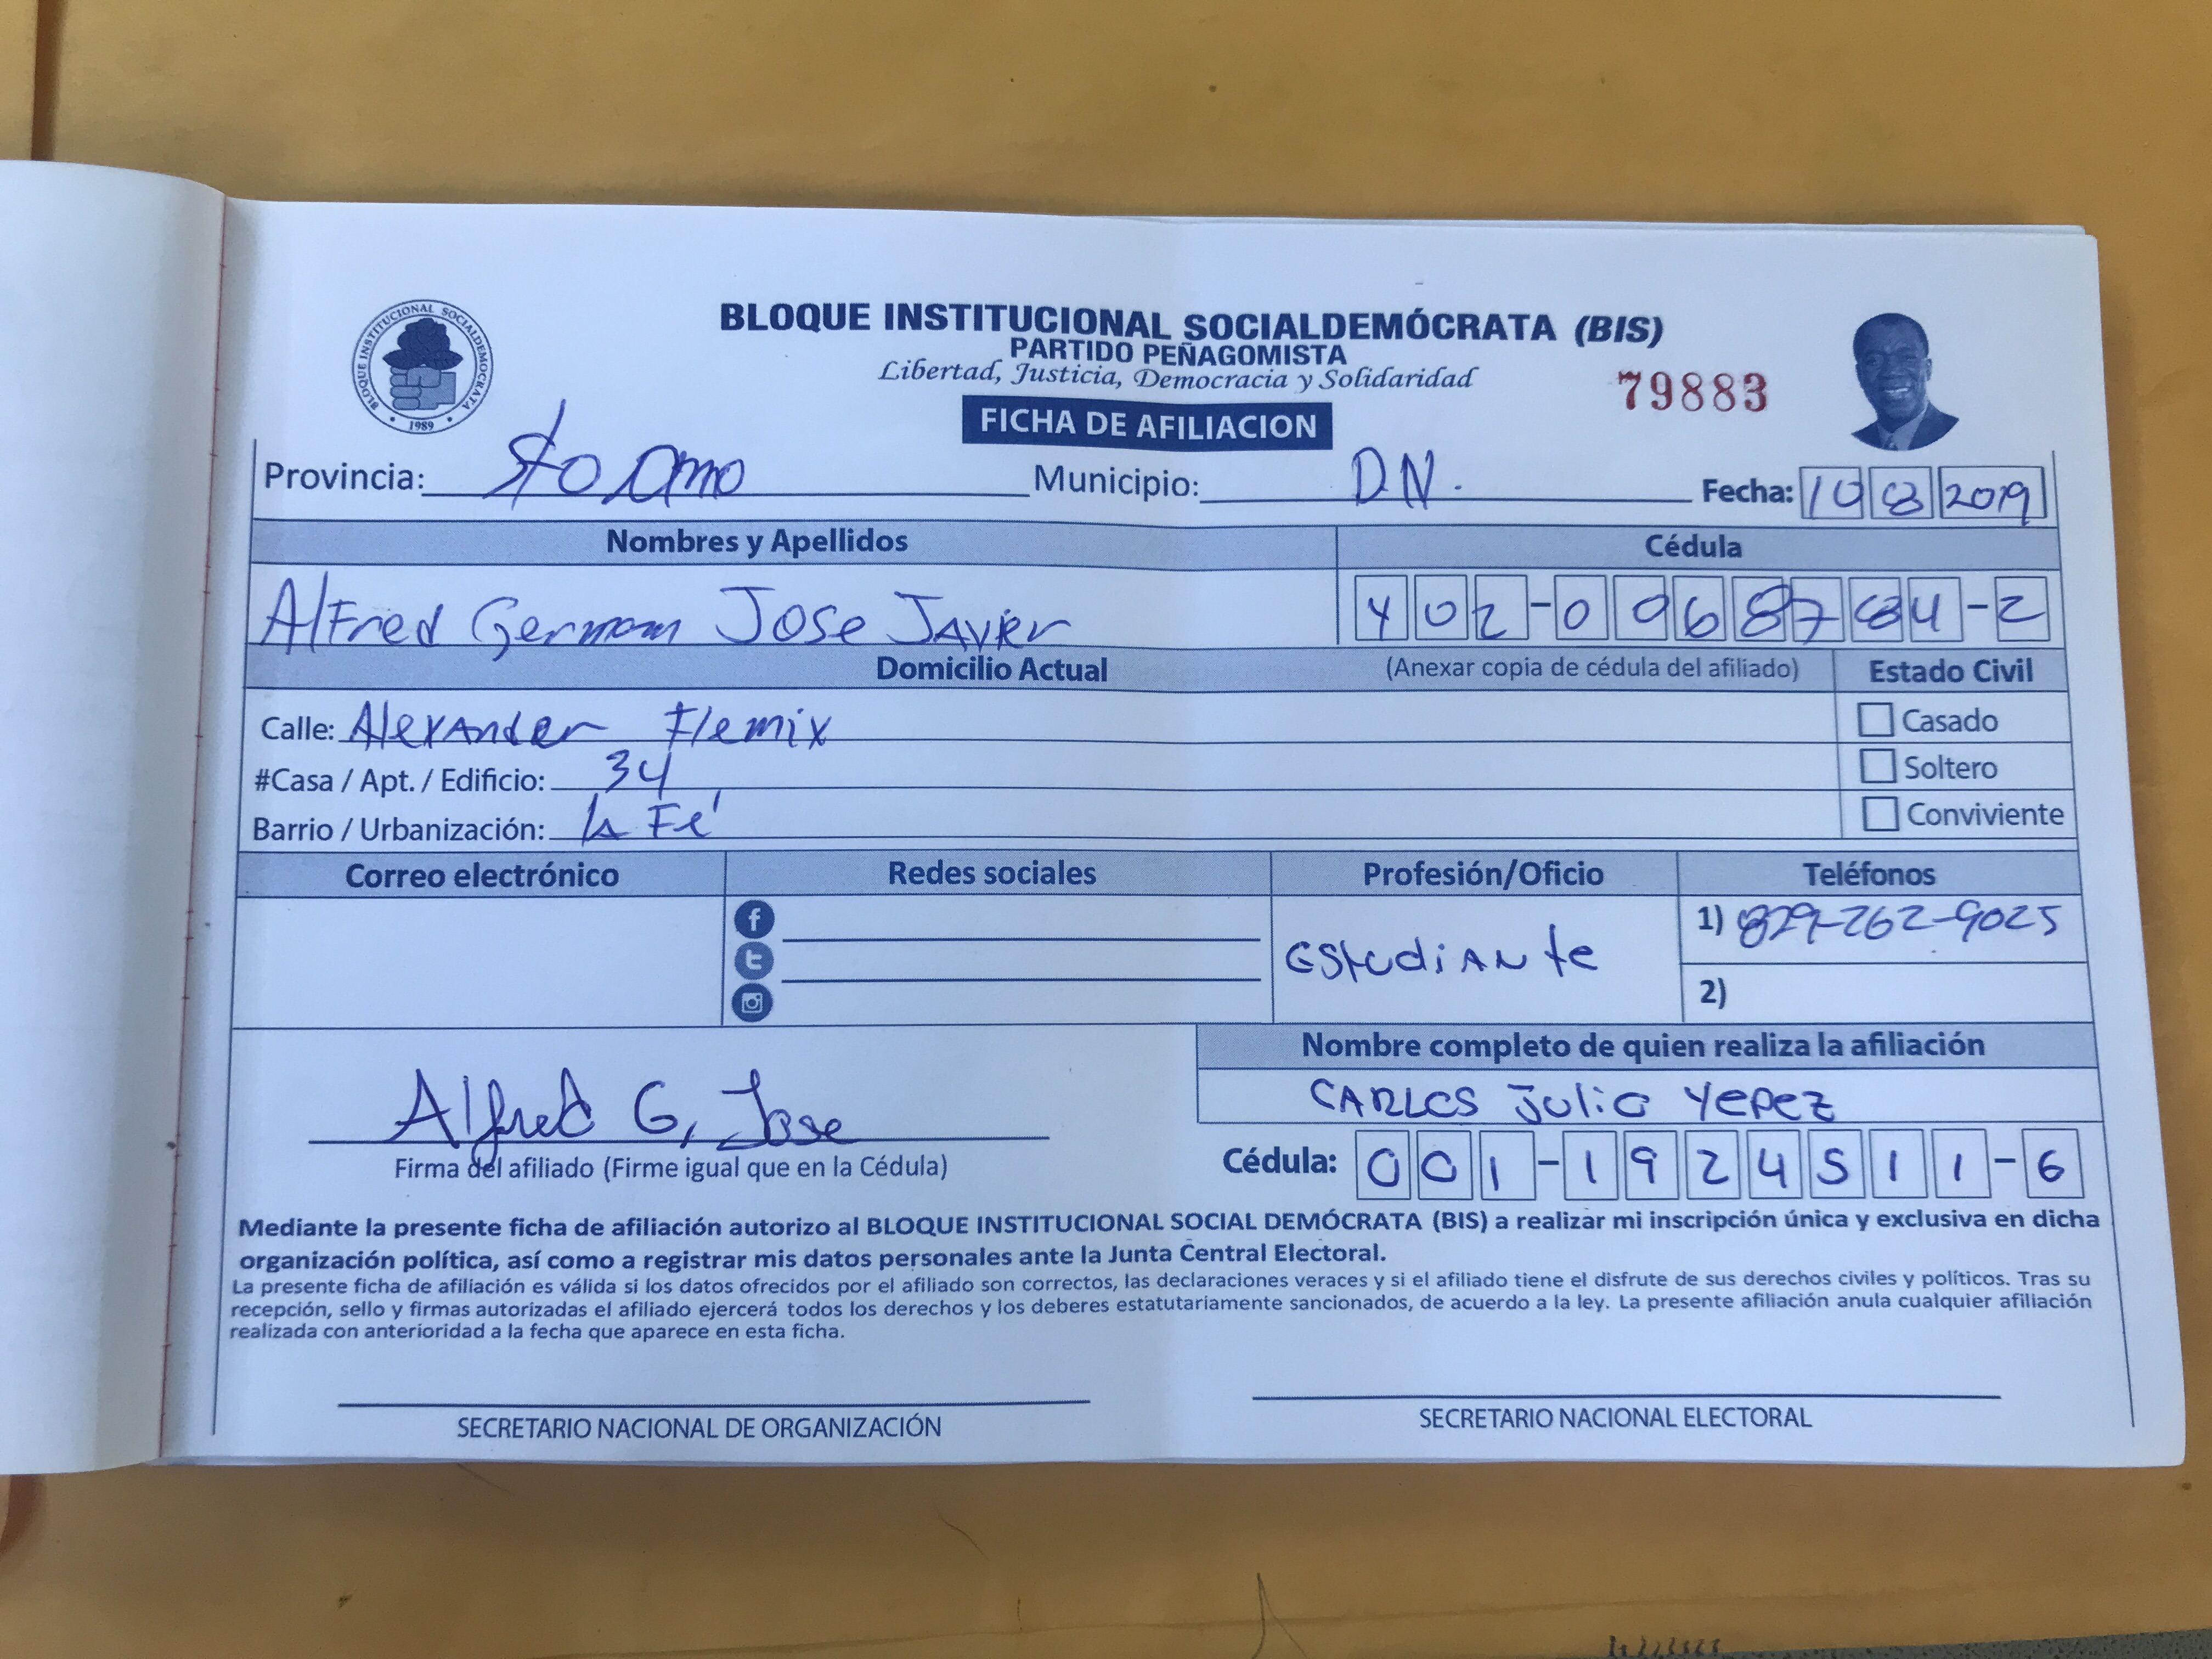 BLOQUE INSTITUCIONAL SOCIALDEMÓCRATA (BIS)
PARTIDO PEÑAGOMISTA
Libertad, Justicia, Democracia y Solidaridad
BLOQUE INSTITUCIONAL SOCIALDEMOCRATA
1989
79883
FICHA DE AFILIACION
Provincia: Sto Dmo Municipio: DN. Fecha: 10 8 2019
Nombres y Apellidos Cédula
Alfred German Jose Javier 402-0968784-2
Domicilio Actual (Anexar copia de cédula del afiliado) Estado Civil
Calle: Alexander Flemix Casado
#Casa / Apt. / Edificio: 34 Soltero
Barrio / Urbanización: la Fé Conviviente
Correo electrónico Redes sociales Profesión/Oficio Teléfonos
Estudiante 1) 829-262-9025
2)
Nombre completo de quien realiza la afiliación
Carlos Julio Yepez
Alfred G, Jose
Firma del afiliado (Firme igual que en la Cédula) Cédula: 001-1924511-6
Mediante la presente ficha de afiliación autorizo al BLOQUE INSTITUCIONAL SOCIAL DEMÓCRATA (BIS) a realizar mi inscripción única y exclusiva en dicha
organización política, así como a registrar mis datos personales ante la Junta Central Electoral.
La presente ficha de afiliación es válida si los datos ofrecidos por el afiliado son correctos, las declaraciones veraces y si el afiliado tiene el disfrute de sus derechos civiles y políticos. Tras su
recepción, sello y firmas autorizadas el afiliado ejercerá todos los derechos y los deberes estatutariamente sancionados, de acuerdo a la ley. La presente afiliación anula cualquier afiliación
realizada con anterioridad a la fecha que aparece en esta ficha.
SECRETARIO NACIONAL DE ORGANIZACIÓN SECRETARIO NACIONAL ELECTORAL